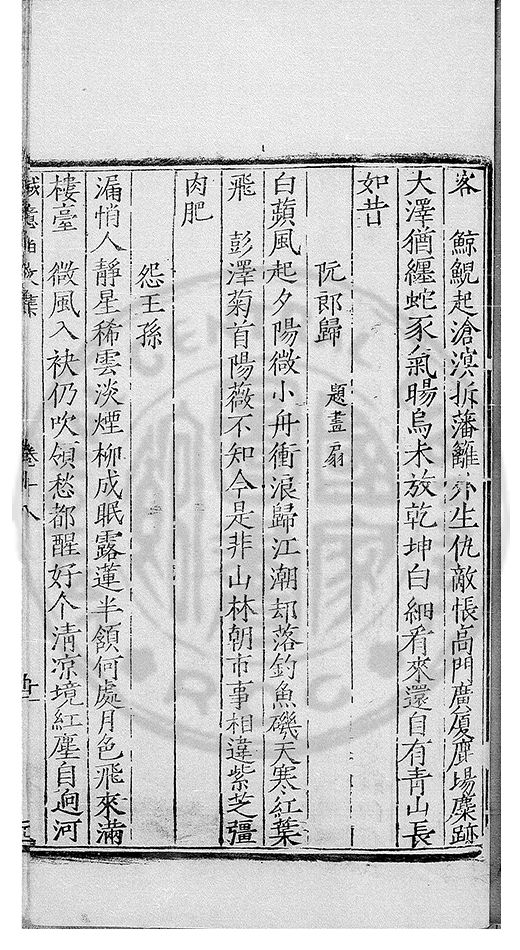 客　鯨鯢起滄溟拆藩籬亦生仇敵悵高門廣厦鹿場麋跡
大澤猶纏蛇豕氣暘烏未放乾坤白細看來還自有青山長
如昔
阮郎歸　題畫扇
白蘋風起夕陽微小舟衝浪歸江潮却落釣魚磯天寒紅葉
飛　彭澤菊首陽薇不知今是非山林朝市事相違紫芝彊
肉肥
怨王孫
漏悄人靜星稀雲淡煙柳成眠露蓮半頷何處月色飛來滿
樓臺　微風入袂仍吹領愁都醒好个清凉境紅塵自逈河
誠意伯文集　卷十八